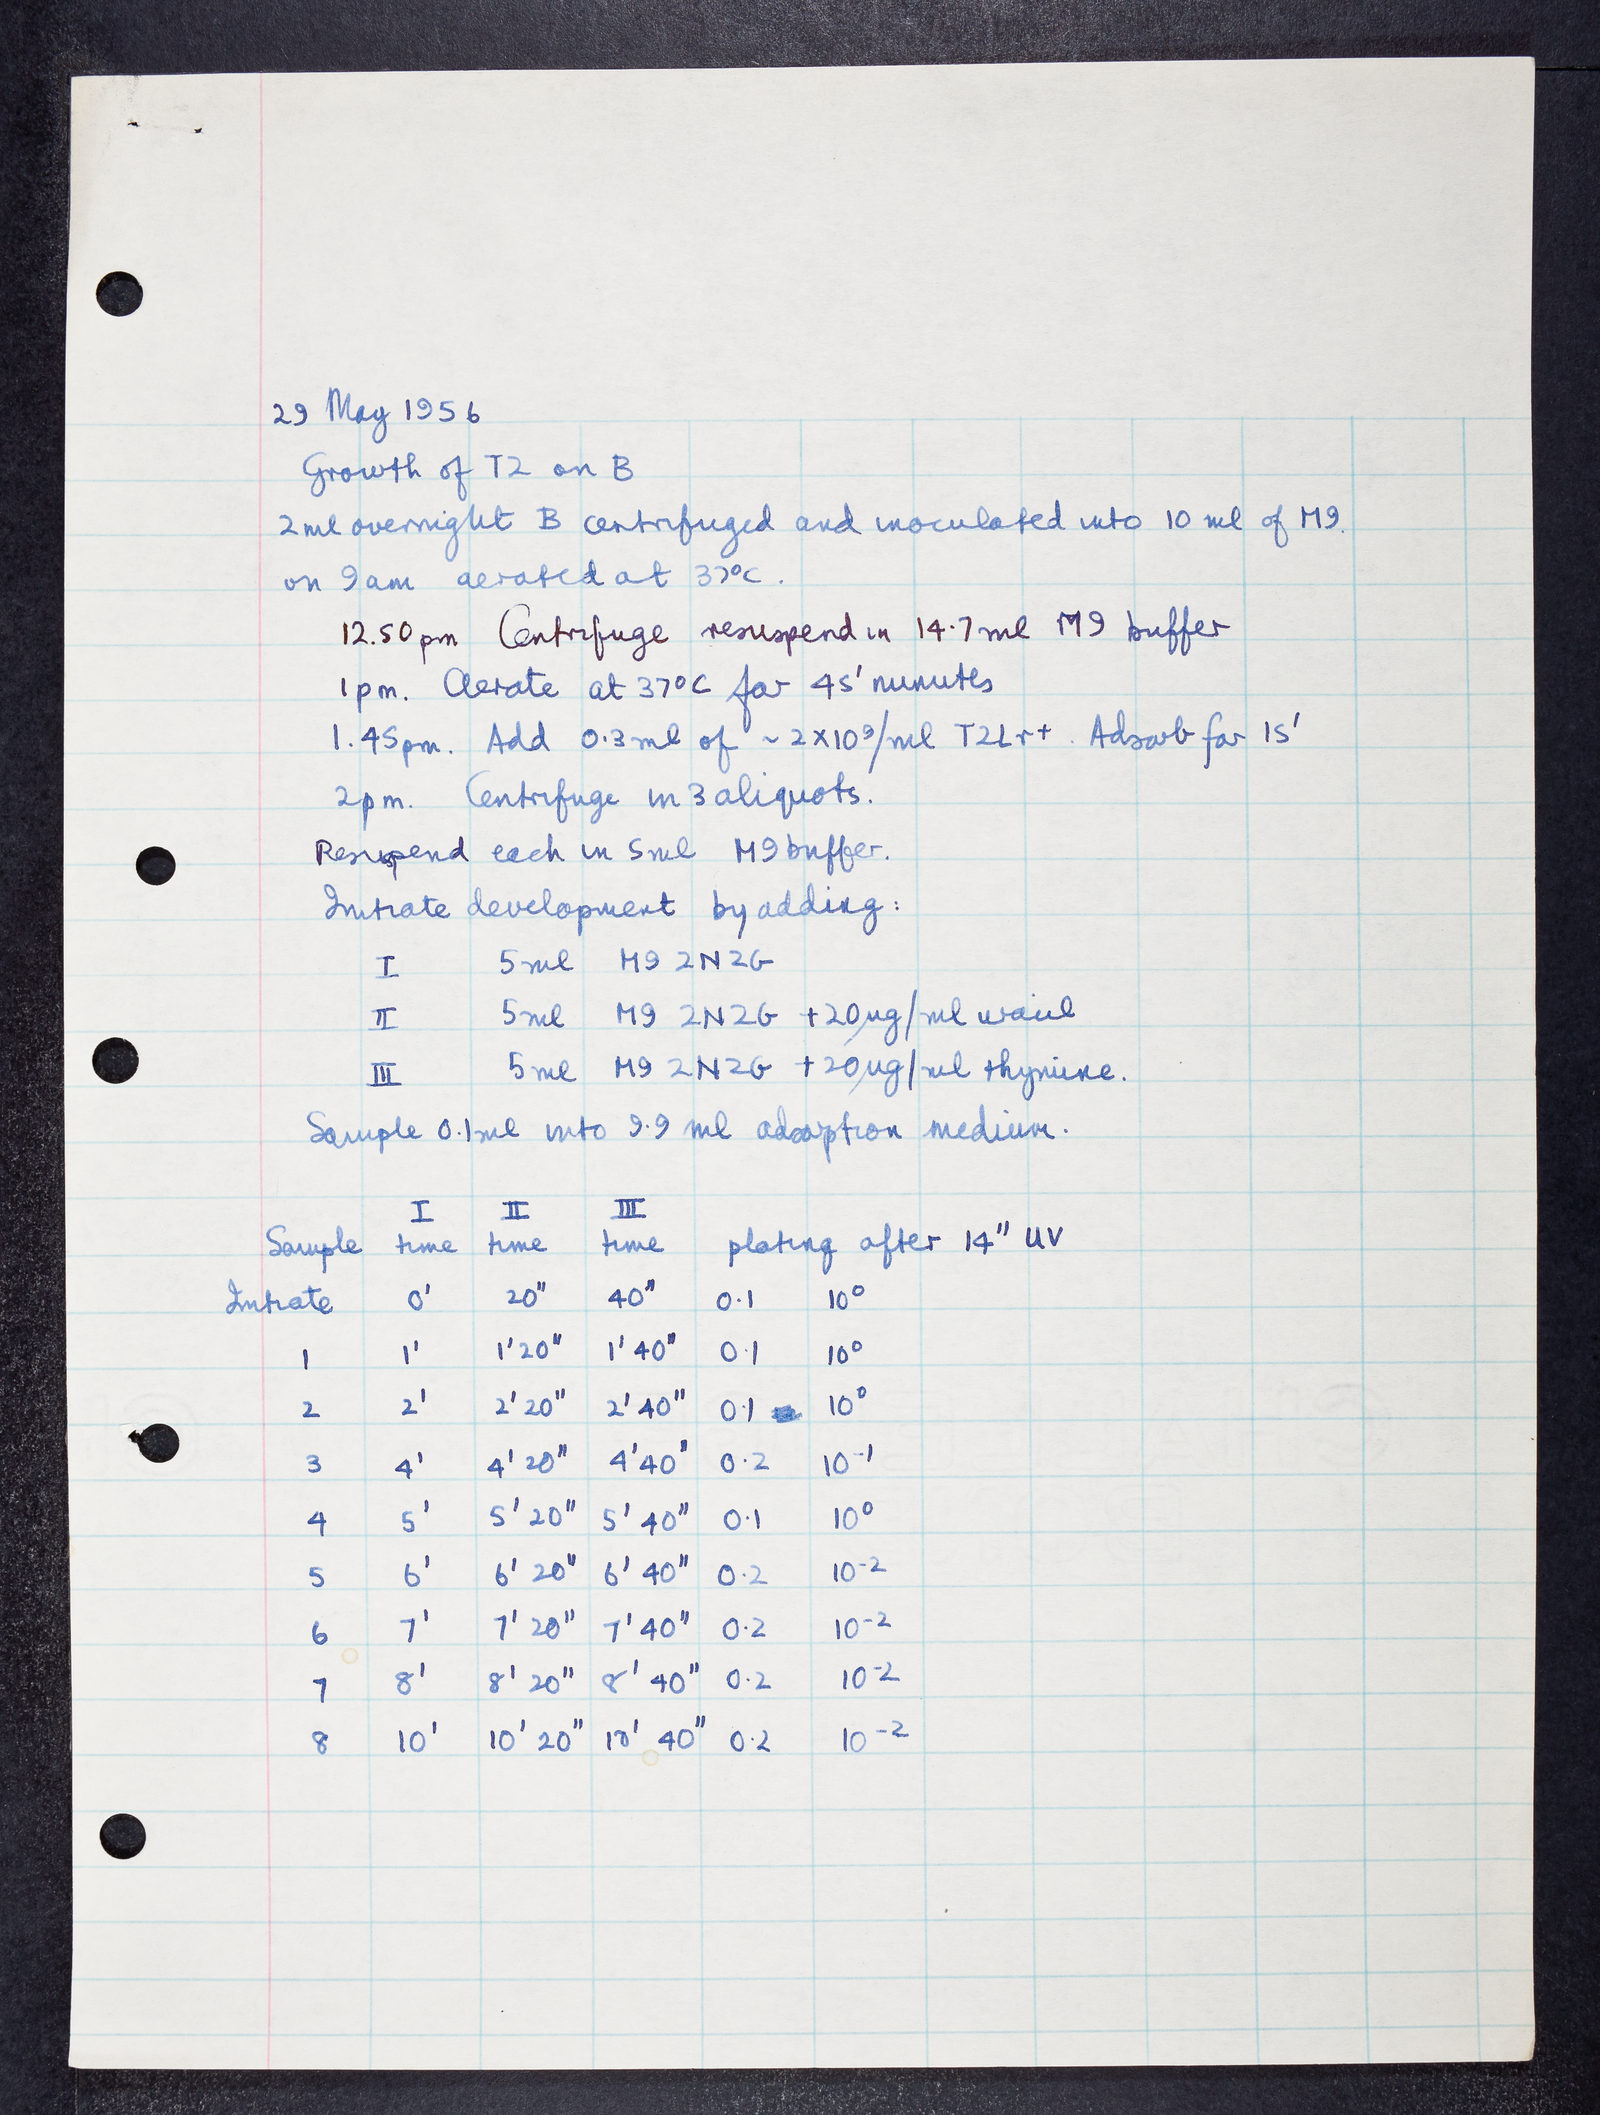 29 May 1956
Growth of T2 on B
2 ml overnight B centrifuged and inoculated into 10 ml of M9.
on 9am aerated at 37°C.
12.50 pm Centrifuge resuspend in 14.7 ml M9 buffer
1 pm. Aerate at 37°C for 45' minutes
1.45 pm. Add 0.3 ml of ~ 2×10⁹/ml T2Lr+. Adsorb for 15'
2 pm. Centrifuge in 3 aliquots.
Resuspend each in 5 ml M9 buffer.
Initiate development by adding:
I 5 ml M9 2N2G
II 5 ml M9 2N2G +20 µg/ml uracil
III 5 ml M9 2N2G +20 µg/ml thymine.
Sample 0.1 ml into 9.9 ml adsorption medium.
I II III
Sample time time time plating after 14" UV
Initiate 0' 20" 40" 0.1 10⁰
1 1' 1'20" 1'40" 0.1 10⁰
2 2' 2'20" 2'40" 0.1 10⁰
3 4' 4'20" 4'40" 0.2 10⁻¹
4 5' 5'20" 5'40" 0.1 10⁰
5 6' 6'20" 6'40" 0.2 10⁻²
6 7' 7'20" 7'40" 0.2 10⁻²
7 8' 8'20" 8'40" 0.2 10⁻²
8 10' 10'20" 10'40" 0.2 10⁻²